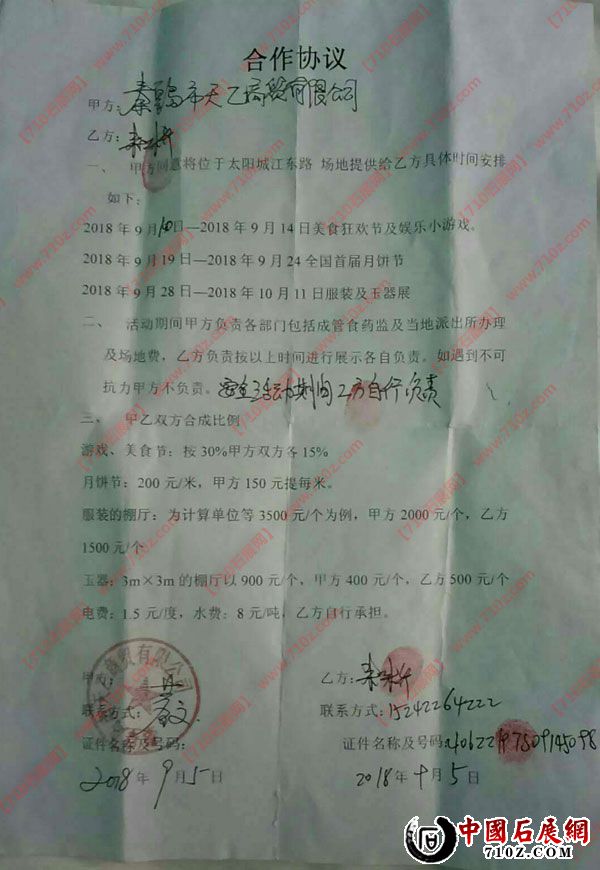 合作协议
甲方：秦皇岛市天乙商贸有限公司
乙方：
一、 甲方同意将位于太阳城江东路 场地提供给乙方具体时间安排
如下：
2018 年 9 月10日—2018 年 9 月 14 日美食狂欢节及娱乐小游戏。
2018 年 9 月 19 日—2018 年 9 月 24 全国首届月饼节
2018 年 9 月 28 日—2018 年 10 月 11 日服装及玉器展
二、 活动期间甲方负责各部门包括成管食药监及当地派出所办理
及场地费，乙方负责按以上时间进行展示各自负责。如遇到不可
抗力甲方不负责。安全活动期间乙方自行负责
三、 甲乙双方合成比例
游戏、美食节：按 30%甲方双方各 15%
月饼节：200 元/米，甲方 150 元提每米。
服装的棚厅：为计算单位等 3500 元/个为例，甲方 2000 元/个，乙方
1500 元/个
玉器：3m×3m 的棚厅以 900 元/个，甲方 400 元/个，乙方 500 元/个
电费：1.5 元/度，水费：8 元/吨，乙方自行承担。
甲方：
乙方：
联系方式：
联系方式：15242264222
证件名称及号码：
证件名称及号码：
2018 年 9 月 5 日
2018 年 9 月 5 日
中國石展網
710z.com
【710石展网】www.710z.com